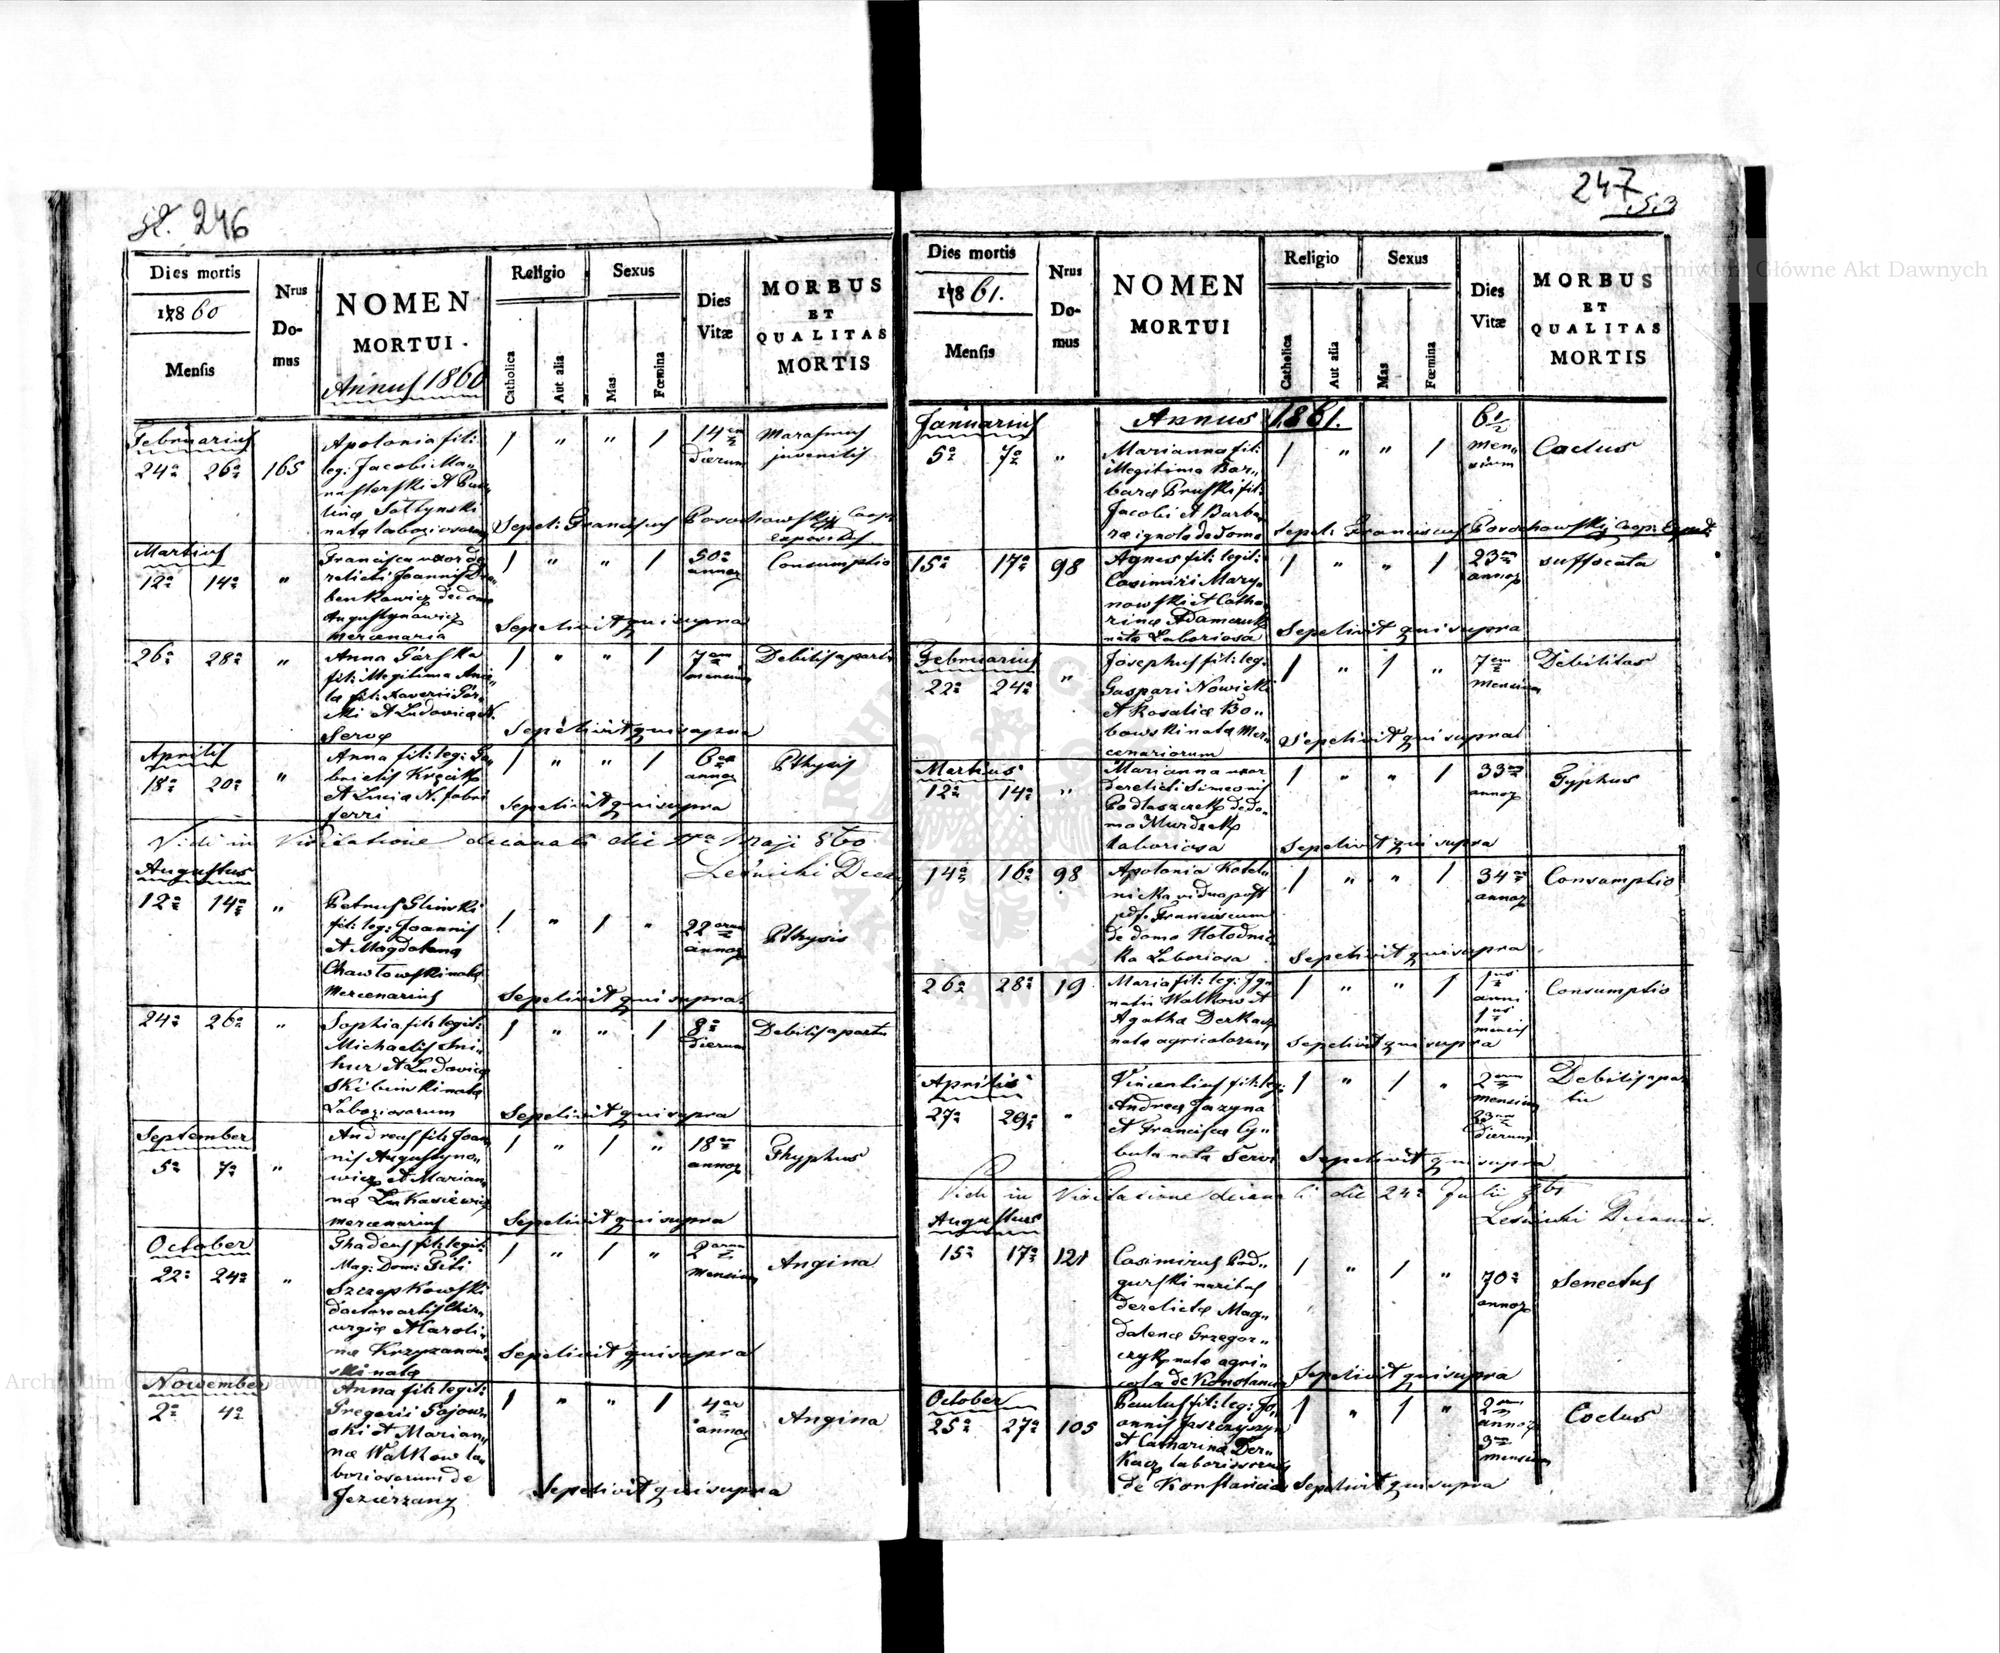 St. 246
Dies mortis
1860
Mensis
Nrus Domus
NOMEN
MORTUI
Annus 1860
Religio
Catholica
Aut alia
Sexus
Mas
Fœmina
Dies Vitæ
MORBUS
ET
QUALITAS
MORTIS
Februarius
24a 26a 165
Apolonia fil:
leg: Jacobi Ma„
nasterski et Pau„
linæ Soltynski
nata laboriosorum
1 „ „ 1
14em dierum
Marasmus
juvenilis
Sepel: Franciscus Porochowski Coop: expositus
Martius
12a 14a „
Francisca uxor de
relicti Joannis
benkowicz de domo
Augustynowicz
mercenaria
1 „ „ 1
50a annor
Consumptio
Sepelivit qui supra
26a 28a „
Anna Górska
fil: illegitima Anie„
læ fil: Xaverii Gór„
ski et Ludovicæ N.
Servæ
1 „ „ 1
7em mensium
Debilis a partu
Sepelivit qui supra
Aprilis
18a 20a „
Anna fil: leg: Ga„
brielis Krzcik
et Lucia N. fabri
ferri
1 „ „ 1
6ex annor
Pthysis
Sepelivit qui supra
Vidi in Visitatione decanali die Maji 860
Leśnicki Decan
Augustus
12a 14a „
Petrus Glinski
fil: leg: Joannis
et Magdalena
Chawlowski nata
mercenarius
1 „ 1 „
22orum annor
Pthysis
Sepelivit qui supra
24a 26a „
Sophia fil: legit:
Michaelis Smi„
hur et Ludovica
Skibinski nata
Laboriosorum
1 „ „ 1
8a dierum
Debilis a partu
Sepelivit qui supra
September
5a 7a „
Andreas fil: Joan
nis Augustyno„
wicz et Marian
næ Lukasiewicz
mercenarius
1 „ 1 „
18 annor
Thyphus
Sepelivit qui supra
October
22a 24a „
Thadeus fil: legit:
Mag: Dom: Titi
Szczepkowski
doctore artis Chir„
urgiæ et Karoli„
næ Krzyzanow„
ski nata
1 „ 1 „
2orum mensium
Angina
Sepelivit qui supra
November
2a 4a
Anna fil: legit:
Gregorii Gajow„
ski et Marian„
næ Walkow la„
boriosorum de
Jezierzany
1 „ „ 1
4or annor
Angina
Sepelivit qui supra
247
53
Dies mortis
1861.
Mensis
Nrus Domus
NOMEN
MORTUI
Religio
Catholica
Aut alia
Sexus
Mas
Fœmina
Dies Vitæ
MORBUS
ET
QUALITAS
MORTIS
Annus 1861.
Januarius
5a 7a „
Marianna fil:
illegitima Bar„
baræ Pruski fil:
Jacobi et Barba„
ra ignota de domo
1 „ „ 1
6 1/2 mensium
Coctus
Sepel: Franciscus Porochowski Coop: Exposit
15a 17a 98
Agnes fil: legit:
Casimiri Mary„
nowski et Catha„
rinæ Adamczuk
nata Laboriosa
1 „ „ 1
23um annor
suffocata
Sepelivit qui supra
Februarius
22a 24a „
Josephus fil: leg:
Gaspari Nowicki
et Rosaliæ Bo„
bowski nata Mer„
cenariorum
1 „ 1 „
7em mensium
Debilitas
Sepelivit qui supra
Martius
12a 14a „
Marianna uxor
derelicti Simeonis
Podlaszczuk de do„
mo Murdzek
laboriosa
1 „ „ 1
33um annor
Typhus
Sepelivit qui supra
14a 16a 98
Apolonia Kotel„
nicka vidua post
pdf. Franciscum
de domo Holodnic
ka Laboriosa
1 „ „ 1
34or annor
Consumptio
Sepelivit qui supra
26a 28a 19
Maria fil: leg: Jg„
natii Walkow et
Agatha Derkacz
nata agricolarum
1 „ „ 1
1us anni 1us mensis
Consumptio
Sepelivit qui supra
Aprilis
27a 29a „
Vincentius fil: leg:
Andrea Jazyna
et Francisca Cy„
bula nata Servi
1 „ 1 „
2orum mensium 23um dierum
Debilis a par
tu
Sepelivit qui supra
Vidi in Visitatione decanali die 24a Julii 861
Leśnicki Decanus.
Augustus
15a 17a 121
Casimirus Pod„
gurski maritus
derelictæ Mag„
dalenæ Grzegor„
czyk nata agri„
cola de Konstancia
1 „ 1 „
70a annor
Senectus
Sepelivit qui supra
October
25a 27a 105
Paulus fil: leg: Jo„
annis Jszczyszyn
et Catharina Der„
kacz laboriosorum
de Konstancia
1 „ 1 „
2orum annor 3um mensium
Coctus
Sepelivit qui supra
Archiwum Główne Akt Dawnych